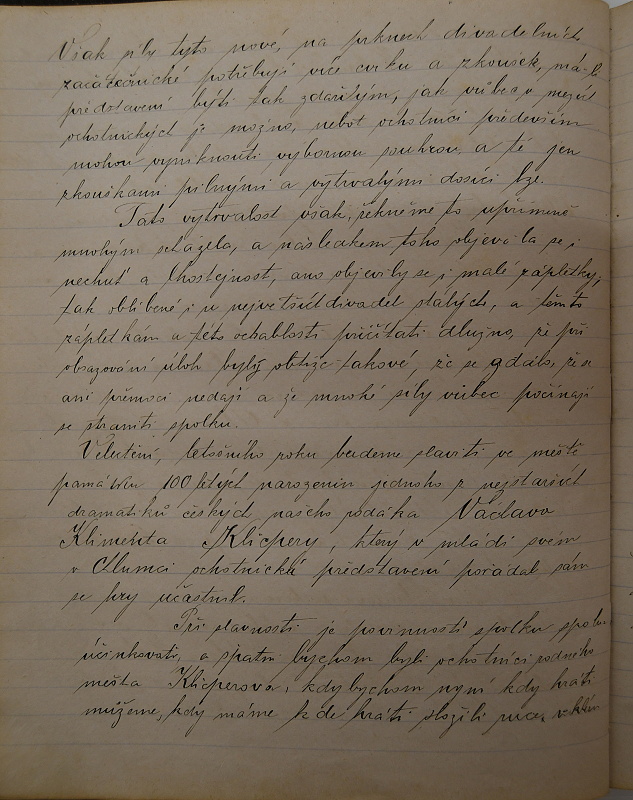 Však síly tyto nové, na prknech divadelních
začátečnické potřebují více cviku a zkoušek, má-li
představení býti tak zdařilým, jak vůbec v mezích
ochotnických je možno, neboť ochotníci především
mohou vyniknouti výbornou souhrou a té jen
zkouškami pilnými a vytrvalými dosíci lze.
Tato vytrvalost však, řekněme to upřímně
mnohým scházela, a následkem toho objevila se i
nechuť a lhostejnost, ano objevily se i malé zápletky,
tak oblíbené i u největších divadel stálých, a těmto
zápletkám a této ochablosti přičítati dlužno, že při
obsazování úloh byly obtíže takové, že se zdálo, že se
ani přemoci nedají a že mnohé síly vůbec počínají
se straniti spolku.
Velectění, letošního roku budeme slaviti ve městě
památku 100 letých narozenin jednoho z nejstarších
dramatiků českých, našeho rodáka Václava
Klimenta Klicpery, který v mládí svém
v Chlumci ochotnická představení pořádal sám
se hry účastnil.
Při slavnosti je povinností spolku spolu
účinkovati, a špatní bychom byli ochotníci rodného
města Klicperova, kdybychom nyní kdy hráti
můžeme, kdy máme kde hráti složili ruce v klín